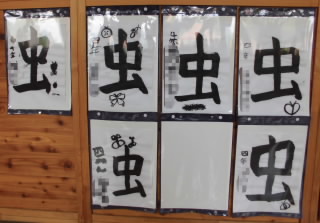 虫
虫
虫
虫
虫
虫